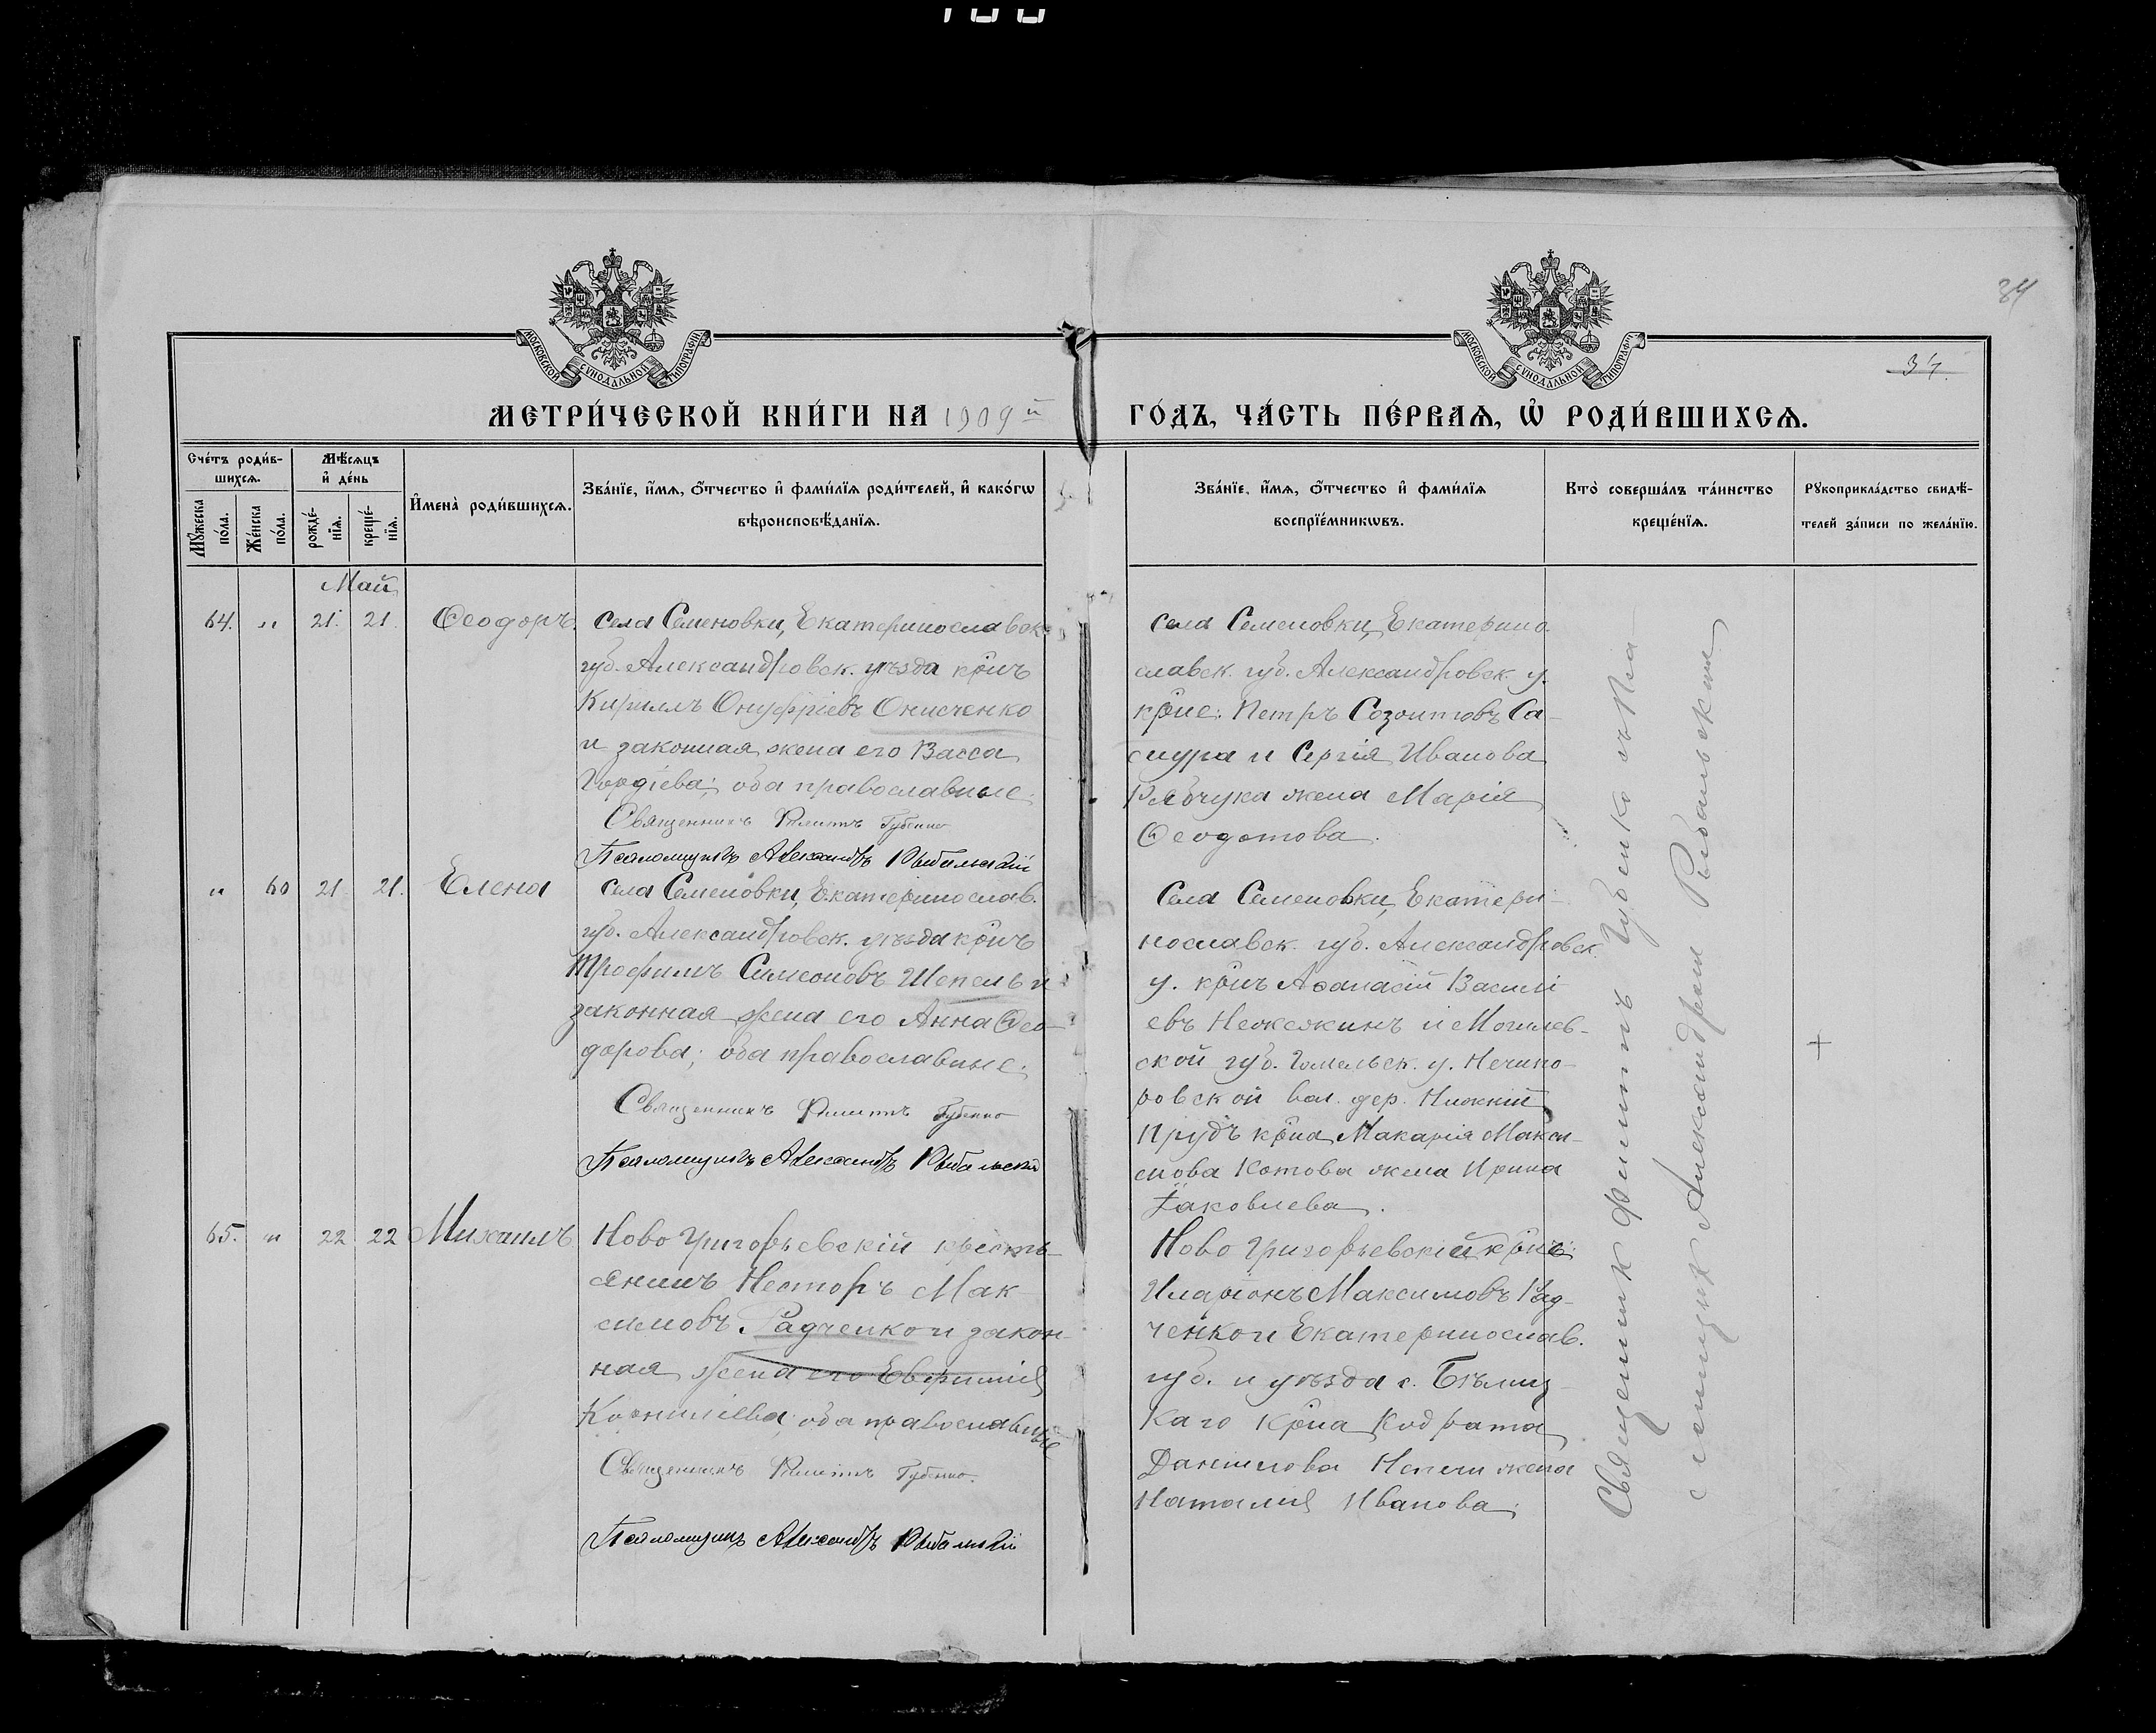 100
84
34.
МОСКОВСКОЙ СѴНОДАЛЬНОЙ ТИПОГРАФІИ
МОСКОВСКОЙ СѴНОДАЛЬНОЙ ТИПОГРАФІИ
МЕТРИ́ЧЕСКОЙ КНИ́ГИ НА 1909 й
ГО́ДЪ, ЧА́СТЬ ПЕ́РВАЯ, Ѡ҆ РОДИ́ВШИХСѦ.
Сче́тъ роди́в-
шихсѧ.
Мꙋ́жеска
по́ла.
Же́нска
по́ла.
Мѣ́сѧцъ
и҆ де́нь
рожде́-
нїѧ.
креще́-
нїѧ.
И҆мена̀ роди́вшихсѧ.
Зва́нїе, и҆́мѧ, ѻ҆́тчество и҆ фами́лїѧ роди́телей, и҆ како́гѡ
вѣроисповѣ́данїѧ.
Зва́нїе, и҆́мѧ, ѻ҆́тчество и҆ фами́лїѧ
воспрїе́мникѡвъ.
Кто̀ соверша́лъ та́инство
креще́нїѧ.
Рꙋкоприкла́дство свидѣ́-
телей за́писи по жела́нїю.
Май
64. " 21. 21. Ѳеодоръ.
Села Семеновки, Екатеринославск.
губ. Александровск. уѣзда кр̃нъ
Кириллъ Онуфріевъ Онисченко
и законная жена его Васса
Гордіева; оба православные.
Священникъ Филиппъ Губенко
Псаломщикъ Александръ Рыбальскій
Села Семеновки, Екатерино-
славск. губ. Александровск. у.
кр̃не: Петръ Созонтовъ Са-
мура и Сергія Иванова
Рябчука жена Марія
Ѳеодотова.
" 60 21. 21. Елена
Села Семеновки, Екатеринослав.
губ. Александровск. уѣзда кр̃нъ
Трофимъ Симеоновъ Шепель и
законная жена его Анна Ѳео-
дорова; оба православные.
Священникъ Филиппъ Губенко
Псаломщикъ Александръ Рыбальскій
Села Семеновки, Екатери-
нославск. губ. Александровск.
у. кр̃нъ Аѳанасій Василі
евъ и Могилев-
ской губ. Гомельск. у.
ровской вол. дер. Нижній
Прудъ кр̃на Макарія Макси-
мова Котова жена Ирина
Іаковлева.
65. " 22 22 Михаилъ
Ново Григорьевскій кресть-
янинъ Несторъ Мак-
симовъ Радченко и закон-
ная жена его Евфимія
Корнилієва оба православные
Священникъ Филиппъ Губенко.
Псаломщикъ Александръ Рыбальскій
Ново Григорьевскій кр̃нъ:
Иларіонъ Максимовъ Рад-
ченко и Екатеринослав.
губ. и уѣзда с.
каго кр̃на Кодрата
Данилова жена
Наталія Иванова.
Священник Филиппъ Губенко съ Пса
ломщик Александром Рыбальским